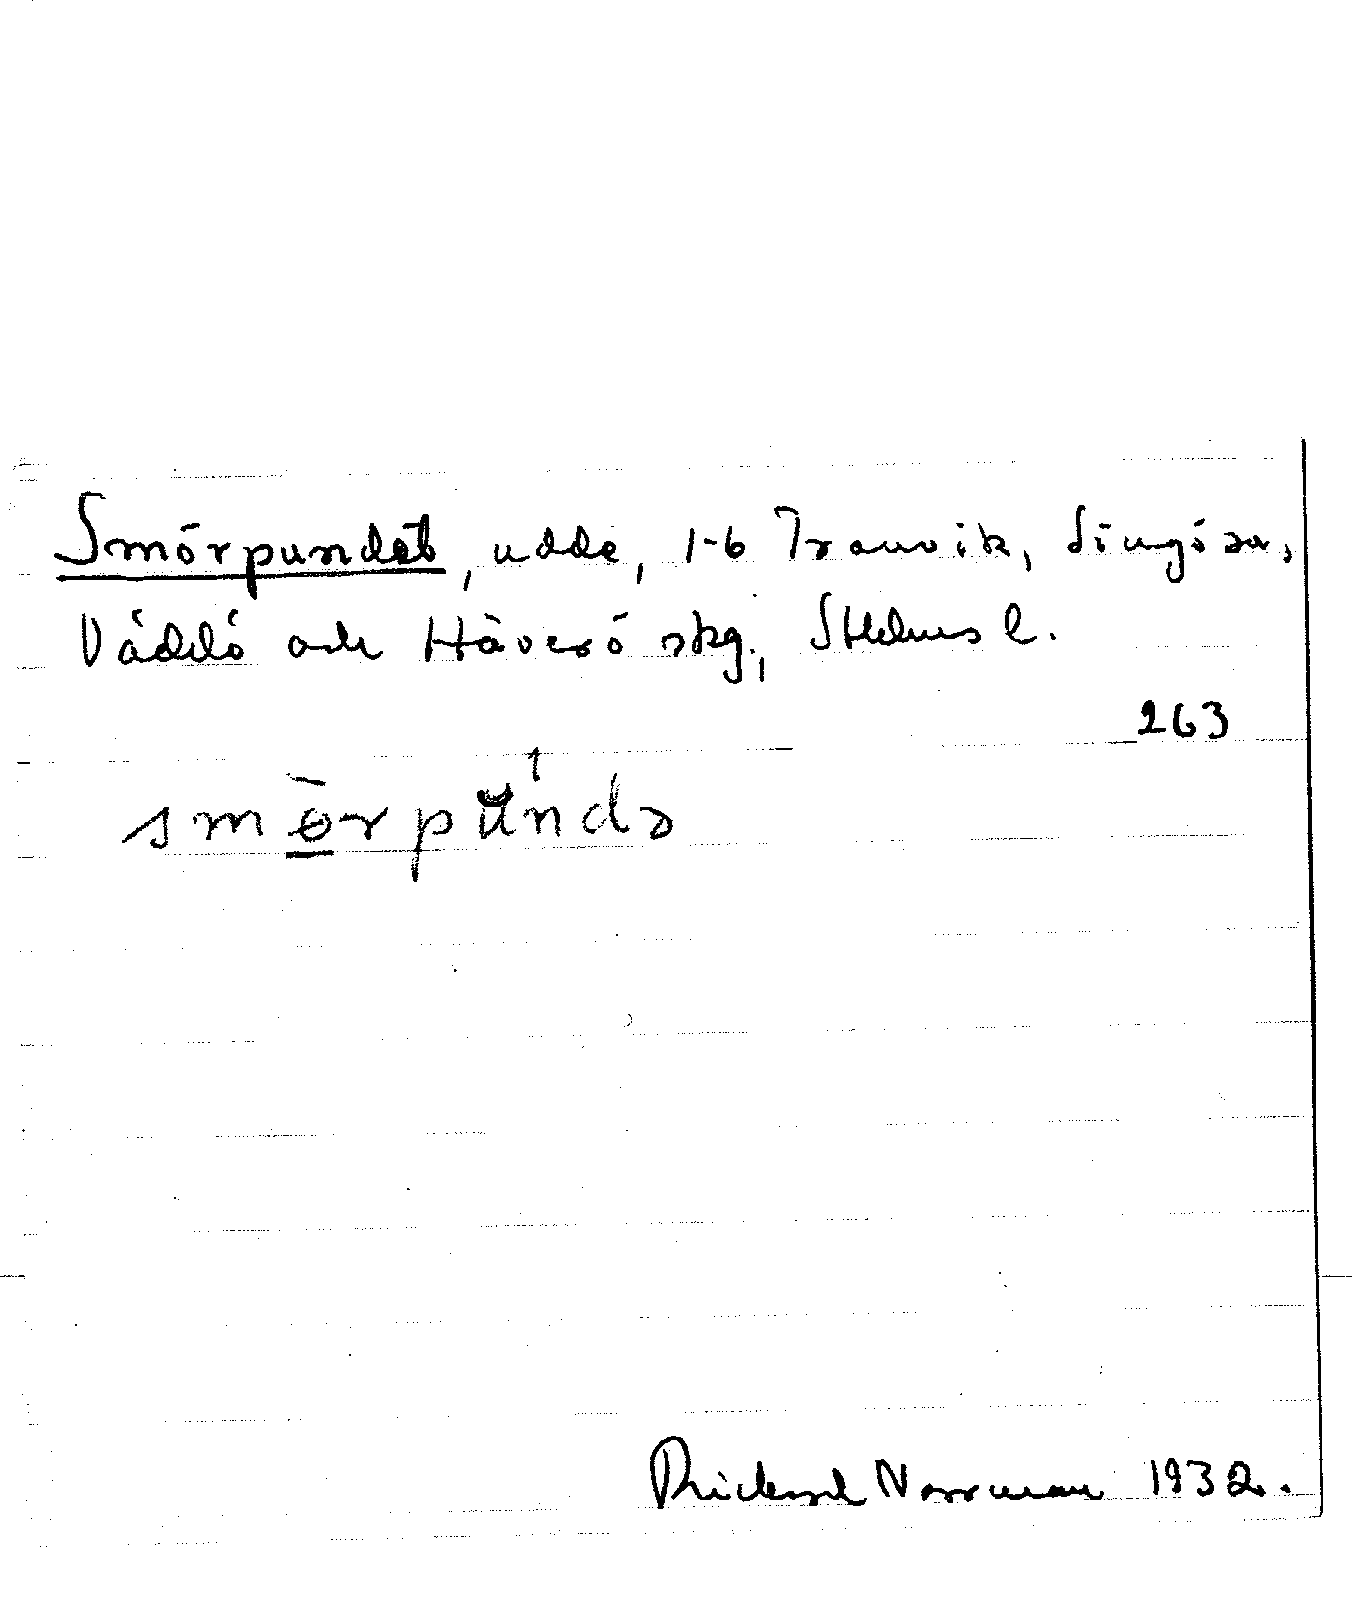 Smörpundet, udde, 1-6 Tranvik, Singö sn,
Väddö och Häverö skg., Sthlms l.
263
smörpŭndə
Rickard Norrman 1932.